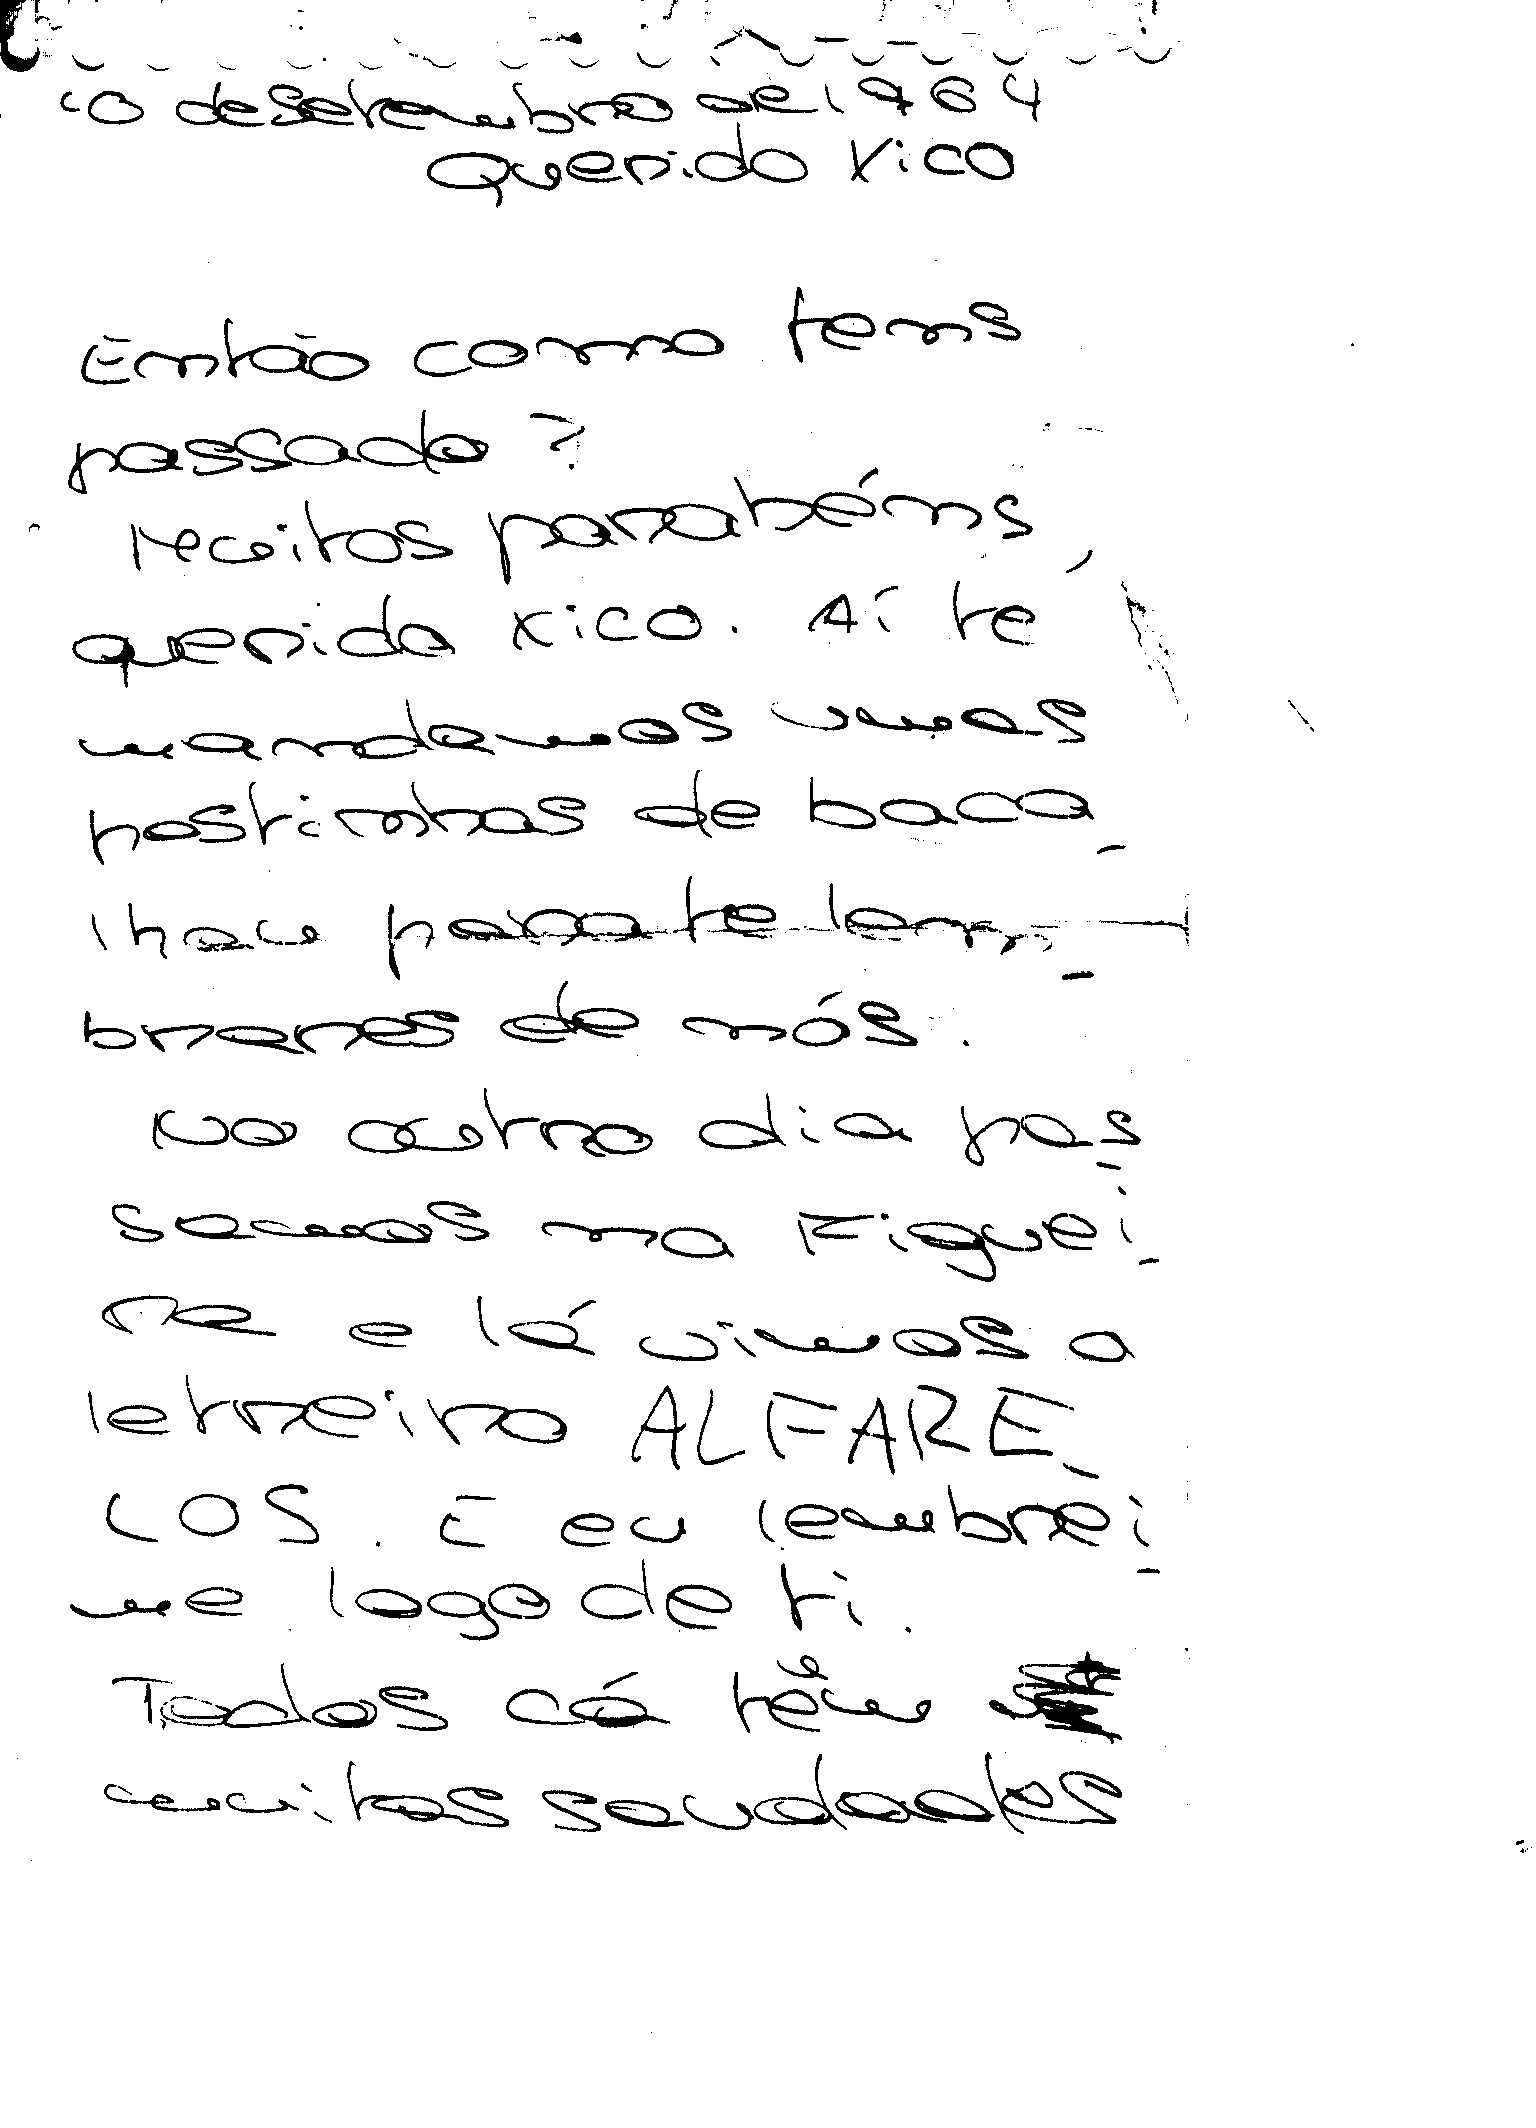 10 de setembro de 1964
Querido Xico
Então como tens
passado?
Muitos parabéns,
querido Xico. Aí te
mandamos umas
postinhas de baca-
lhau para te lem-
brares de nós.
No outro dia pas-
samos na Figuei-
ra e lá vimos o
letreiro ALFARE-
LOS. E eu lembrei-
me logo de ti.
Todos cá têm
muitas saudades